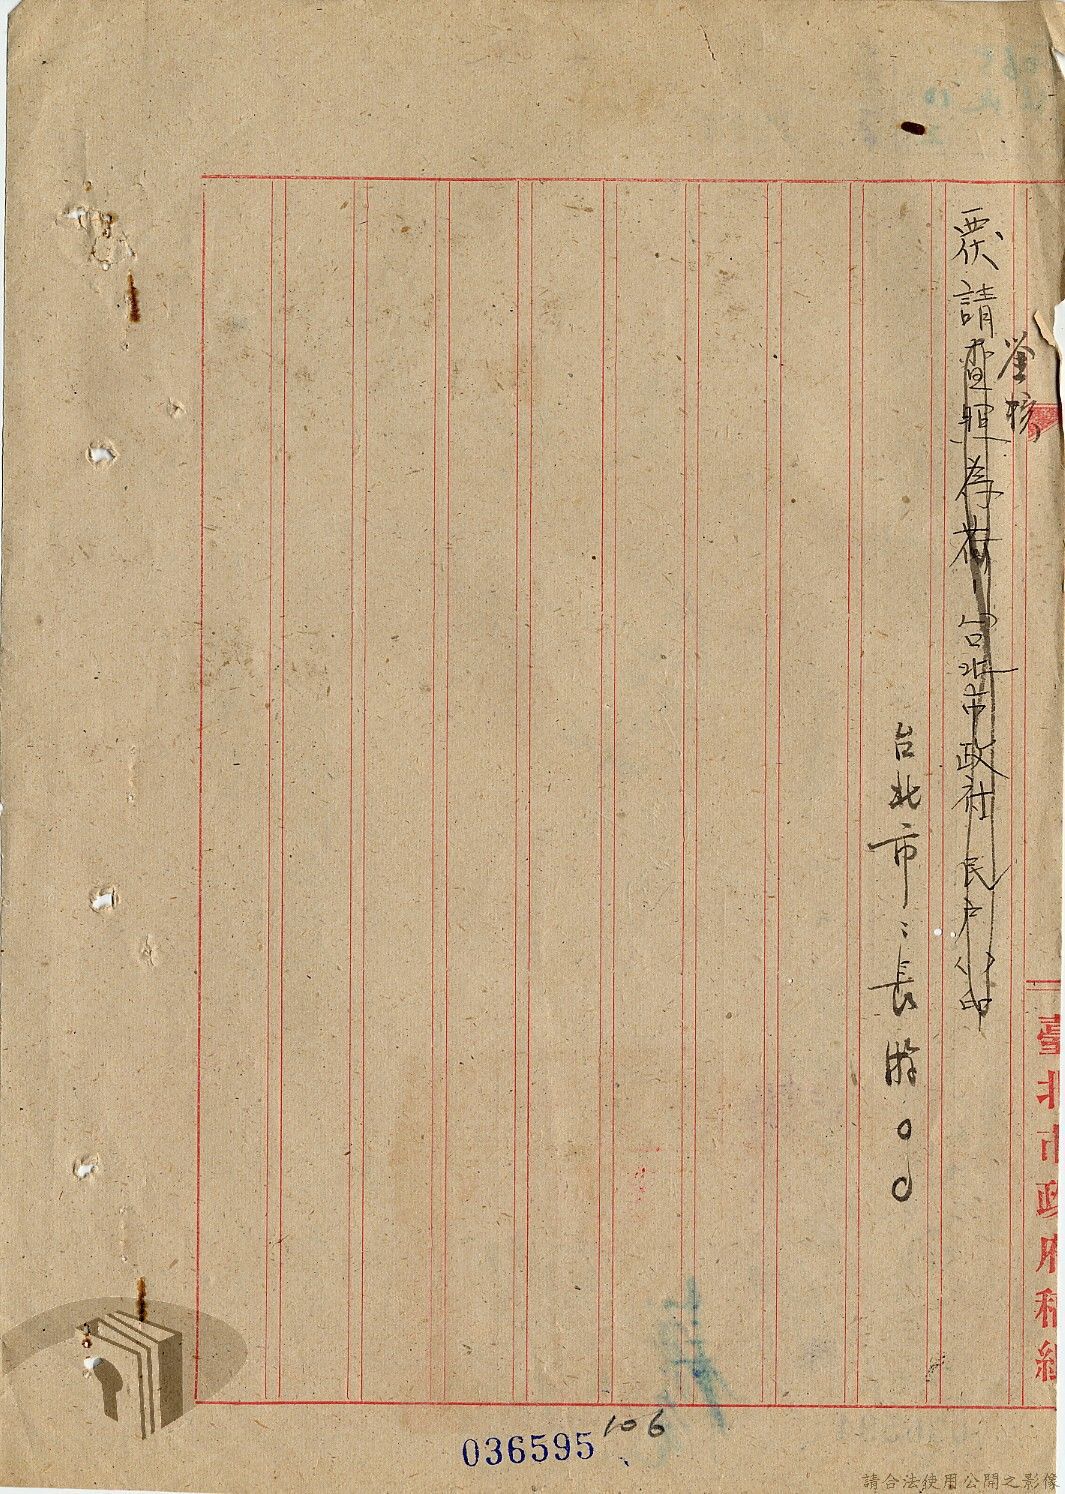 臺北市政府稿紙
鉴核
覆請查照為荷台北市政社民戶印
台北市:長游○○
036595
106
請合法使用公開之影像